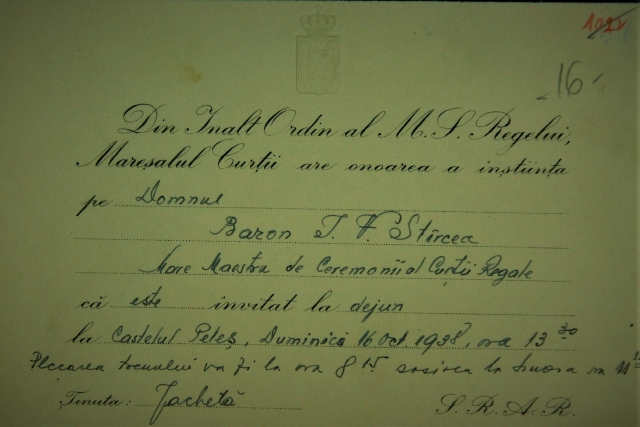 1022
16
Din Inalt Ordin al M. S. Regelui,
Mareșalul Curții are onoarea a înștiința
pe Domnul
Baron I. V. Stîrcea
Mare Maestru de Ceremonii al Curții Regale
că este invitat la dejun
la Castelul Peleș, Duminică 16 Oct. 1938, ora 13 30
Plecarea trenului va fi la ora 8 15 sosirea la Sinaia
Ținuta: Jachetă
S. R. A. R.